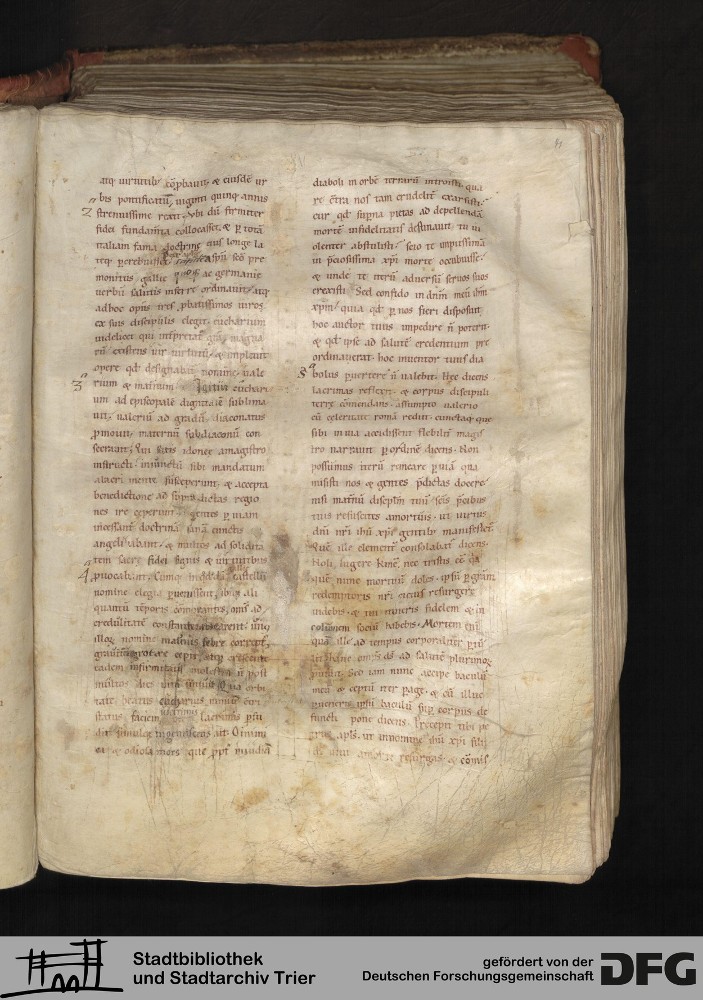 atq; uirtutib; cōpbauit, & eiusdē ur
bis pontificatū, uiginti quinq; annis
2 strenuissime rexit. Vbi dū firmiter
fidei fundam̄ta collocasset, & p totā
italiam fama doctrine eius longe la
teq; pcrebuisset, spū sc̄o pre
monitus gallie quoq; ac germanie
uerbū salutis inferre ordinauit, atq;
ad hoc opus tres pbatissimos uiros
ex suis discipulis elegit. eucharium
uidelicet qui int̄pretat̄ grā. magna
rū existens uir uirtutū, & impleuit
opere qd̄ designabat̄ nomine. uale
3 rium & mat̄num. Igitur euchari
um ad episcopalē dignitatē sublima
uit, ualeriū ad gradū diaconatus
pmouit, mat̄nū subdiaconū con
secrauit. Qui satis idonee a magistro
instructi, iniunctū sibi mandatum
alacri mente susceperunt, & accepta
benedictione ad sup̄dictas regio
nes ire ceperunt. gentes p uiam
incessant̄ doctrinā sanā cunctis
angelizabant, & multos ad solidita
tem sacre fidei signis & uirtutibus
4 puocabant. Cumq; castellū
nomine elegia puenissent, ibiq; ali
quantū temporis commorantes, om̄s ad
credulitatē constant̄ unus
illoq; nomine mat̄nus febre correpī,
grauit̄ egrotare cepit, atq; crescente
eadem infirmitatis molestia n̄ post
multos dies uitā finiuit. Qua orbi
tate beatus eucharius nimiū cōtri
status, faciem lacrimis pfu
dit, simulq; ingemiscens ait. O inimi
ca & odiosa mors, que ppt̄ inuidiā
diaboli in orbē terrarū introisti, qua
re cōtra nos tam crudelit̄ exarsisti.
cur qd̄ supna pietas ad depellendā
mortē infidelitatis destinauit, tu ui
olenter abstulisti. sero te impiissimā
in p̄ciosissima xp̄i morte occubuisse.
& unde te iterū aduersū seruos suos
erexisti. Sed confido in dn̄m meū ihm̄
xp̄m, quia qd̄ p nos fieri disposuit,
hoc auctor tuus impedire n̄ potent̄.
& qd̄ ipse ad salutē credentium pre
ordinauerat, hoc inuentor tuus dia
5 bolus puertere n̄ ualebit. Hec dicens
lacrimas repssit, & corpus discipuli
terre cōmendans, assumpto ualerio
cū celeritate romā rediit, cunctaq; que
sibi in uia accidissent flebilit̄ magis
tro narrauit p ordinē dicens. Non
possumus iterū remeare p uiā qua
misisti nos & gentes p̄dictas docere
nisi mat̄nū disciplm̄ tuū sc̄is p̄cibus
tuis resuscites a mortuis, ut uirtus
dn̄i nr̄i ihū xp̄i gentib; manifestet̄.
Quē ille element̄ consolabat̄ dicens.
Noli lugere kme, nec tristis cē qā
quē nunc mortuū doles, ipsū p grām
redemptoris nr̄i citius resurgere
uidebis, & tui itineris fidelem & in
columem sociū habebis. Mortem eni
quā ille ad tempus corporalit̄
ad salutē plurimoꝝ
Sed iam nunc accipe baculū
meū & ceptū iter page, & cū illuc
ueneris, ipsū baculū sup corpus de
functi pone dicens. Precepit tibi pe
trus apls̄, ut in nomine ihū xp̄i filii
dī uiui a mortē resurgas, & cōmis
Stadtbibliothek
und Stadtarchiv Trier
gefördert von der
Deutschen Forschungsgemeinschaft
DFG